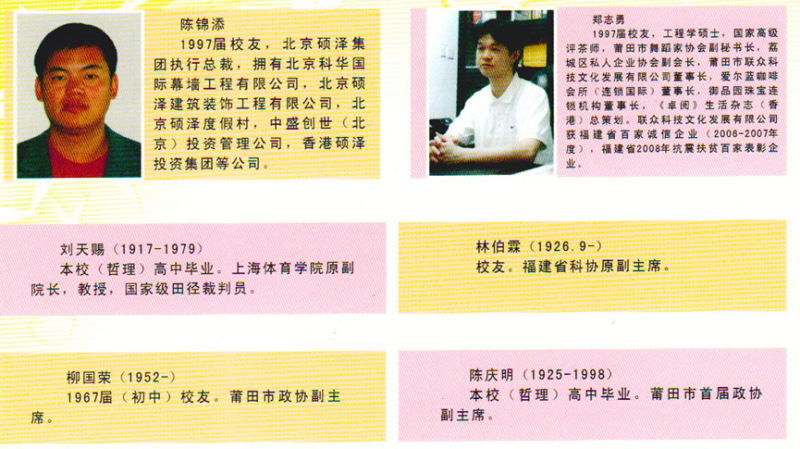 陈锦添
1997届校友，北京硕泽集
团执行总裁，拥有北京科华国
际幕墙工程有限公司，北京硕
泽建筑装饰工程有限公司，北
京硕泽度假村，中盛创世（北
京）投资管理公司，香港硕泽
投资集团等公司。
郑志勇
1997届校友，工程学硕士，国家高级
评茶师，莆田市舞蹈家协会副秘书长，荔
城区私人企业协会副会长，莆田市联众科
技文化发展有限公司董事长，爱尔蓝咖啡
会所（连锁国际）董事长，御品园珠宝连
锁机构董事长，《卓阅》生活杂志（香
港）总策划。联众科技文化发展有限公司
获福建省百家诚信企业（2006-2007年
度），福建省2008年抗震扶贫百家表彰企
业。
刘天赐（1917-1979）
本校（哲理）高中毕业。上海体育学院原副
院长，教授，国家级田径裁判员。
林伯霖（1926.9-）
校友。福建省科协原副主席。
柳国荣（1952-）
1967届（初中）校友。莆田市政协副主
席。
陈庆明（1925-1998）
本校（哲理）高中毕业。莆田市首届政协
副主席。